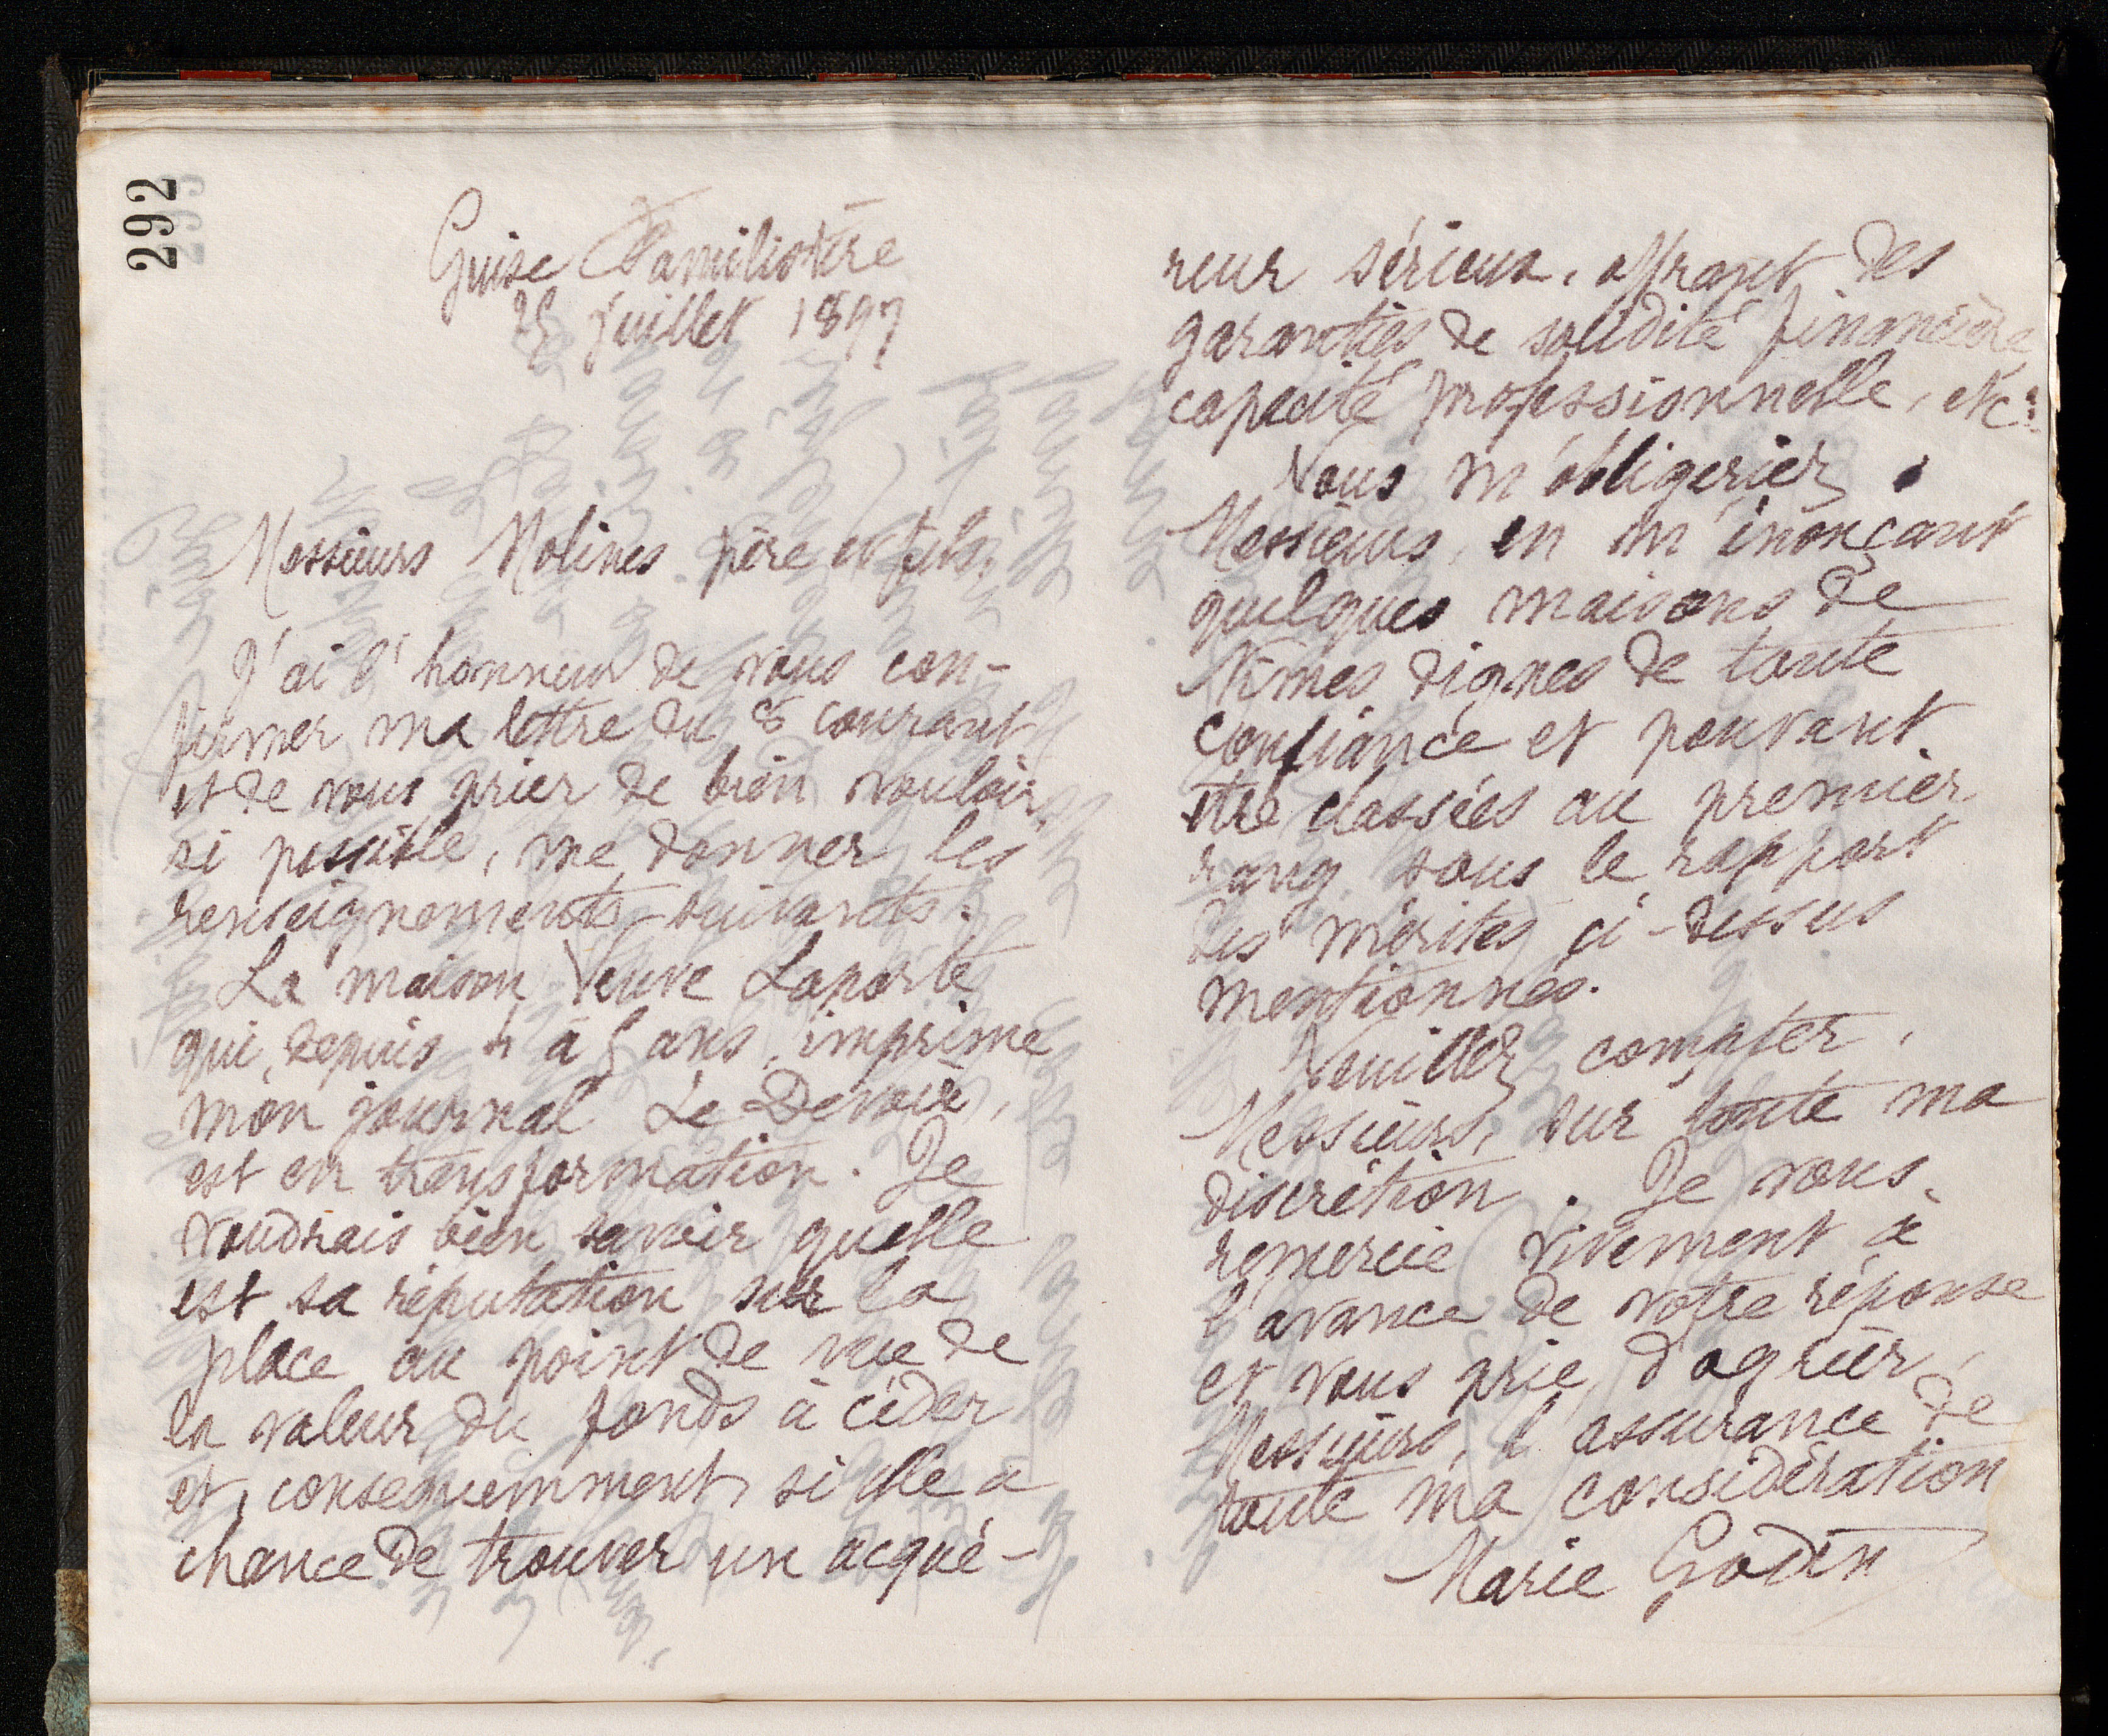 292
Guise Familistère
25 juillet 1897
Messieurs Molines père et fils,
J'ai l'honneur de vous con-
firmer ma lettre du 8 courant
et de vous prier de bien vouloir,
si possible, me donner les
renseignements suivants.
La maison Veuve Laporte
qui, depuis 4 à 5 ans, imprime
mon journal Le Devoir,
est en transformation. Je
voudrais bien savoir quelle
est sa réputation sur la
place au point de vue de
la valeur du fonds à céder
et, conséquemment, si elle a
chance de trouver un acqué-
reur sérieux, offrant des
garanties de solidité financière
capacité professionnelle, etc.
Vous m'obligeriez,
Messieurs, en m'énonçant
quelques maisons de
Nîmes dignes de toute
confiance et pouvant
être classées au premier
rang sous le rapport
des mérites ci-dessus
mentionnés.
Veuillez compter,
Messieurs, sur toute ma
discrétion. Je vous
remercie vivement à
l'avance de votre réponse
et vous prie d'agréer,
Messieurs, l'assurance de
toute ma considération
Marie Godin